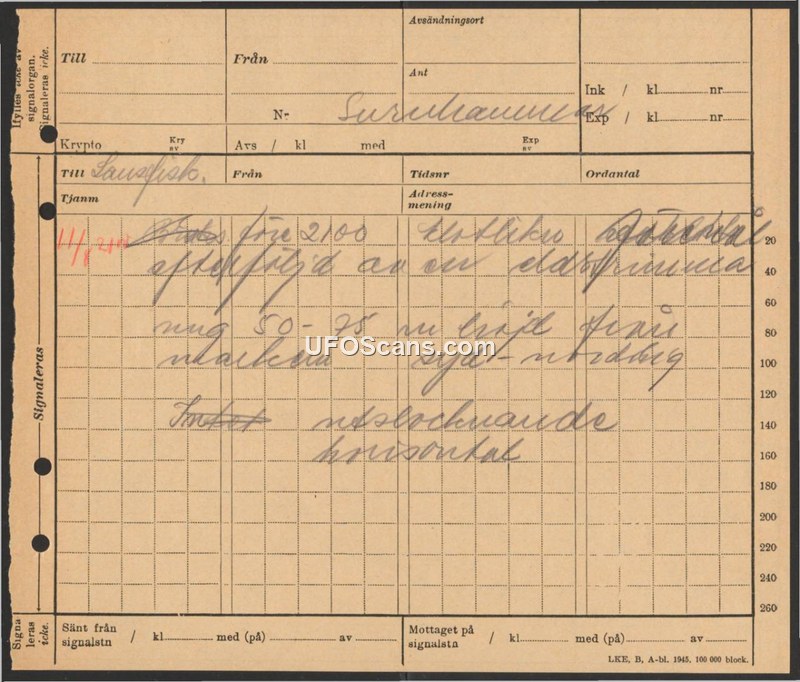 Ifylles icke av
signalorgan.
Signaleras icke.
Avsändningsort
Till
Från
Ant
Ink / kl nr
Nr Surahammar
Exp / kl nr
Krypto
Kry
av
Avs / kl med
Exp
av
Till
Från
Tidsnr
Ordantal
Tjanm
Adress-
mening
11/8
före 2100 klotlikn
20
efterföljd av en eldstrimma
40
60
50-75 m höjd från
80
marken syd-nordlig
100
UFOScans.com
120
utslocknande
140
horisontal
160
180
200
220
240
260
Signaleras
Signa-
leras
icke.
Sänt från
signalstn / kl med (på) av
Mottaget på
signalstn / kl med (på) av
LKE, B, A-bl. 1945. 100 000 block.